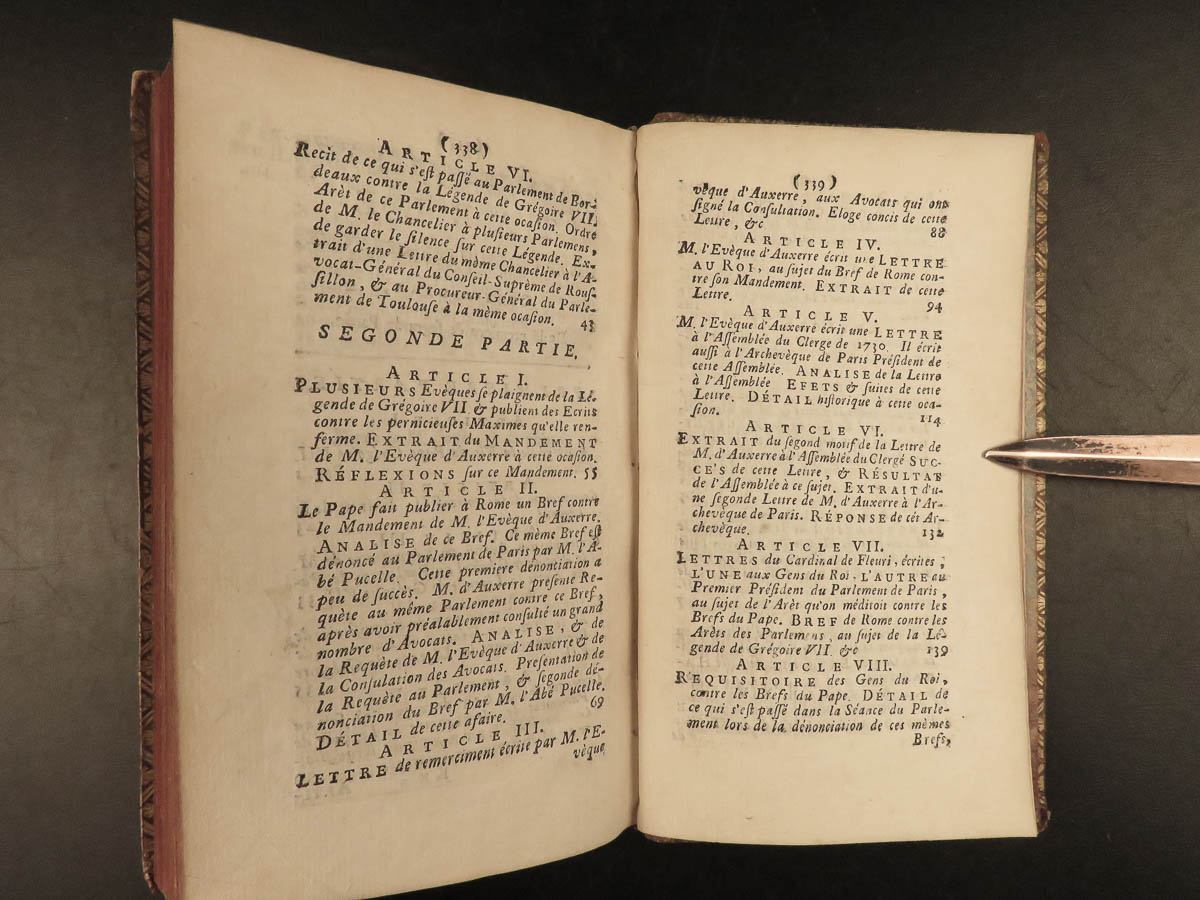 (338)
ARTICLE VI.
Recit de ce qui s'est passé au Parlement de Bor-
deaux contre la Légende de Grégoire VII.
Arèt de ce Parlement à cette ocasion. Ordre
de M. le Chancelier à plusieurs Parlemens,
de garder le silence sur cette Légende. Ex-
trait d'une Lettre du mème Chancelier à l'A-
vocat-Général du Conseil-Suprème de Rous-
sillon, & au Procureur-Général du Parle-
ment de Toulouse à la mème ocasion. 43
SEGONDE PARTIE.
ARTICLE I.
PLUSIEURS Evèques se plaignent de la Lé-
gende de Grégoire VII & publient des Ecrits
contre les pernicieuses Maximes qu'elle ren-
ferme. EXTRAIT du MANDEMENT
de M. l'Evèque d'Auxerre à cette ocasion.
RÉFLEXIONS sur ce Mandement. 55
ARTICLE II.
Le Pape fait publier à Rome un Bref contre
le Mandement de M. l'Evèque d'Auxerre.
ANALISE de ce Bref. Ce mème Bref est
dénoncé au Parlement de Paris par M. l'A-
bé Pucelle. Cette premiere dénonciation a
peu de succès. M. d'Auxerre presente Re-
quète au mème Parlement contre ce Bref,
après avoir préalablement consulté un grand
nombre d'Avocats. ANALISE, & de
la Requète de M. l'Evèque d'Auxerre & de
la Consulation des Avocats. Presentation de
la Requète au Parlement, & segonde dé-
nonciation du Bref par M. l'Abé Pucelle.
DÉTAIL de cette afaire. 69
ARTICLE III.
LETTRE de remerciment écrite par M. l'E-
vèque
(339)
vèque d'Auxerre, aux Avocats qui ont
signé la Consultation. Eloge concis de cette
Lettre, &c 88
ARTICLE IV.
M. l'Evèque d'Auxerre écrit une LETTRE
AU ROI, au sujet du Bref de Rome con-
tre son Mandement. EXTRAIT de cette
Lettre. 94
ARTICLE V.
M. l'Evèque d'Auxerre écrit une LETTRE
à l'Assemblée du Clerge de 1730. Il écrit
aussi à l'Archevèque de Paris Président de
cette Assemblée. ANALISE de la Lettre
à l'Assemblée EFETS & suites de cette
Lettre. DÉTAIL historique à cette oca-
sion. 114
ARTICLE VI.
EXTRAIT du segond motif de la Lettre de
M. d'Auxerre à l'Assemblée du Clergé SUC-
CE'S de cette Lettre, & RÉSULTAT
de l'Assemblée à ce sujet. EXTRAIT d'u-
ne segonde Lettre de M. d'Auxerre à l'Ar-
chevèque de Paris. RÉPONSE de cét Ar-
chevèque. 132
ARTICLE VII.
LETTRES du Cardinal de Fleuri, écrites;
L'UNE aux Gens du Roi, L'AUTRE au
Premier Président du Parlement de Paris,
au sujet de l'Arèt qu'on méditoit contre les
Brefs du Pape. BREF de Rome contre les
Arèts des Parlemens, au sujet de la Lé-
gende de Grégoire VII. &c 139
ARTICLE VIII.
REQUISITOIRE des Gens du Roi,
contre les Brefs du Pape. DÉTAIL de
ce qui s'est passé dans la Séance du Parle-
ment lors de la dénonciation de ces mèmes
Brefs,